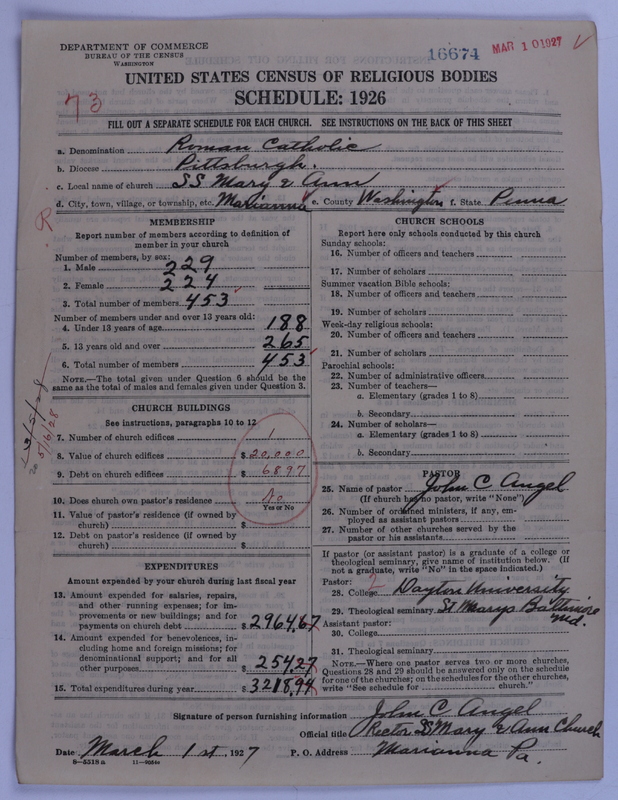 DEPARTMENT OF COMMERCE
BUREAU OF THE CENSUS
WASHINGTON
16674
MAR 10 1927
UNITED STATES CENSUS OF RELIGIOUS BODIES
SCHEDULE: 1926
73
FILL OUT A SEPARATE SCHEDULE FOR EACH CHURCH. SEE INSTRUCTIONS ON THE BACK OF THIS SHEET
a. Denomination Roman Catholic
b. Diocese Pittsburgh.
c. Local name of church SS Mary & Ann
d. City, town, village, or township, etc. Marianna e. County Washington f. State Penna
R
MEMBERSHIP
Report number of members according to definition of
member in your church
Number of members, by sex:
1. Male 229
2. Female 224
3. Total number of members 453
Number of members under and over 13 years old:
4. Under 13 years of age 188
5. 13 years old and over 265
6. Total number of members 453
NOTE.—The total given under Question 6 should be the
same as the total of males and females given under Question 3.
5/6/28
CHURCH BUILDINGS
See instructions, paragraphs 10 to 12
7. Number of church edifices 1
8. Value of church edifices $20,000
9. Debt on church edifices $6897
10. Does church own pastor's residence No
Yes or No
11. Value of pastor's residence (if owned by
church) $
12. Debt on pastor's residence (if owned by
church) $
EXPENDITURES
Amount expended by your church during last fiscal year
13. Amount expended for salaries, repairs,
and other running expenses; for im-
provements or new buildings; and for
payments on church debt $2964,67
14. Amount expended for benevolences, in-
cluding home and foreign missions; for
denominational support; and for all
other purposes $254,27
15. Total expenditures during year $3218,94
CHURCH SCHOOLS
Report here only schools conducted by this church
Sunday schools:
16. Number of officers and teachers
17. Number of scholars
Summer vacation Bible schools:
18. Number of officers and teachers
19. Number of scholars
Week-day religious schools:
20. Number of officers and teachers
21. Number of scholars
Parochial schools:
22. Number of administrative officers
23. Number of teachers—
a. Elementary (grades 1 to 8)
b. Secondary
24. Number of scholars—
a. Elementary (grades 1 to 8)
b. Secondary
PASTOR
25. Name of pastor John C Angel
(If church has no pastor, write "None")
26. Number of ordained ministers, if any, em-
ployed as assistant pastors
27. Number of other churches served by the
pastor or his assistants
If pastor (or assistant pastor) is a graduate of a college or
theological seminary, give name of institution below. (If
not a graduate, write "No" in the space indicated.)
Pastor: 2
28. College Dayton University
29. Theological seminary St Marys Baltimore
Md.
Assistant pastor:
30. College
31. Theological seminary
NOTE.—Where one pastor serves two or more churches,
Questions 28 and 29 should be answered only on the schedule
for one of the churches; on the schedules for the other churches,
write "See schedule for church."
Signature of person furnishing information John C Angel
Official title Rector SS Mary & Ann Church
Date March 1st, 1927 P. O. Address Marianna Pa.
8—5518 a